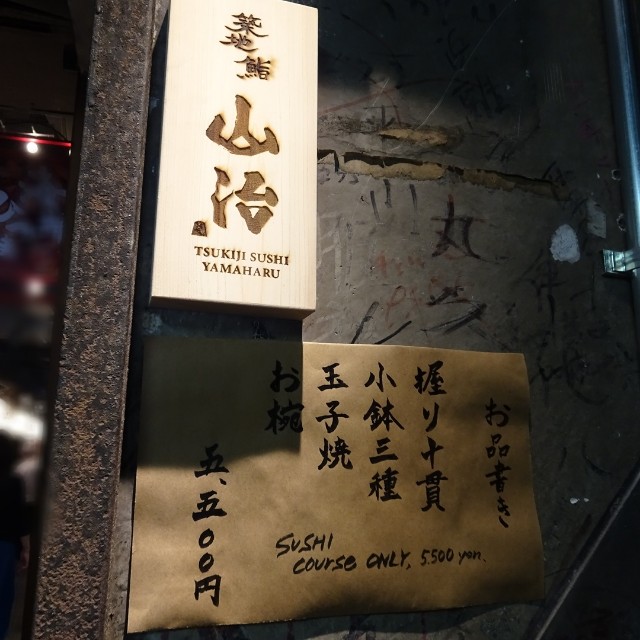 築地鮨
山治
TSUKIJI SUSHI
YAMAHARU
お品書き
握り十貫
小鉢三種
玉子焼
お椀
五、五〇〇円
SUSHI
COURSE ONLY, 5.500 yen.